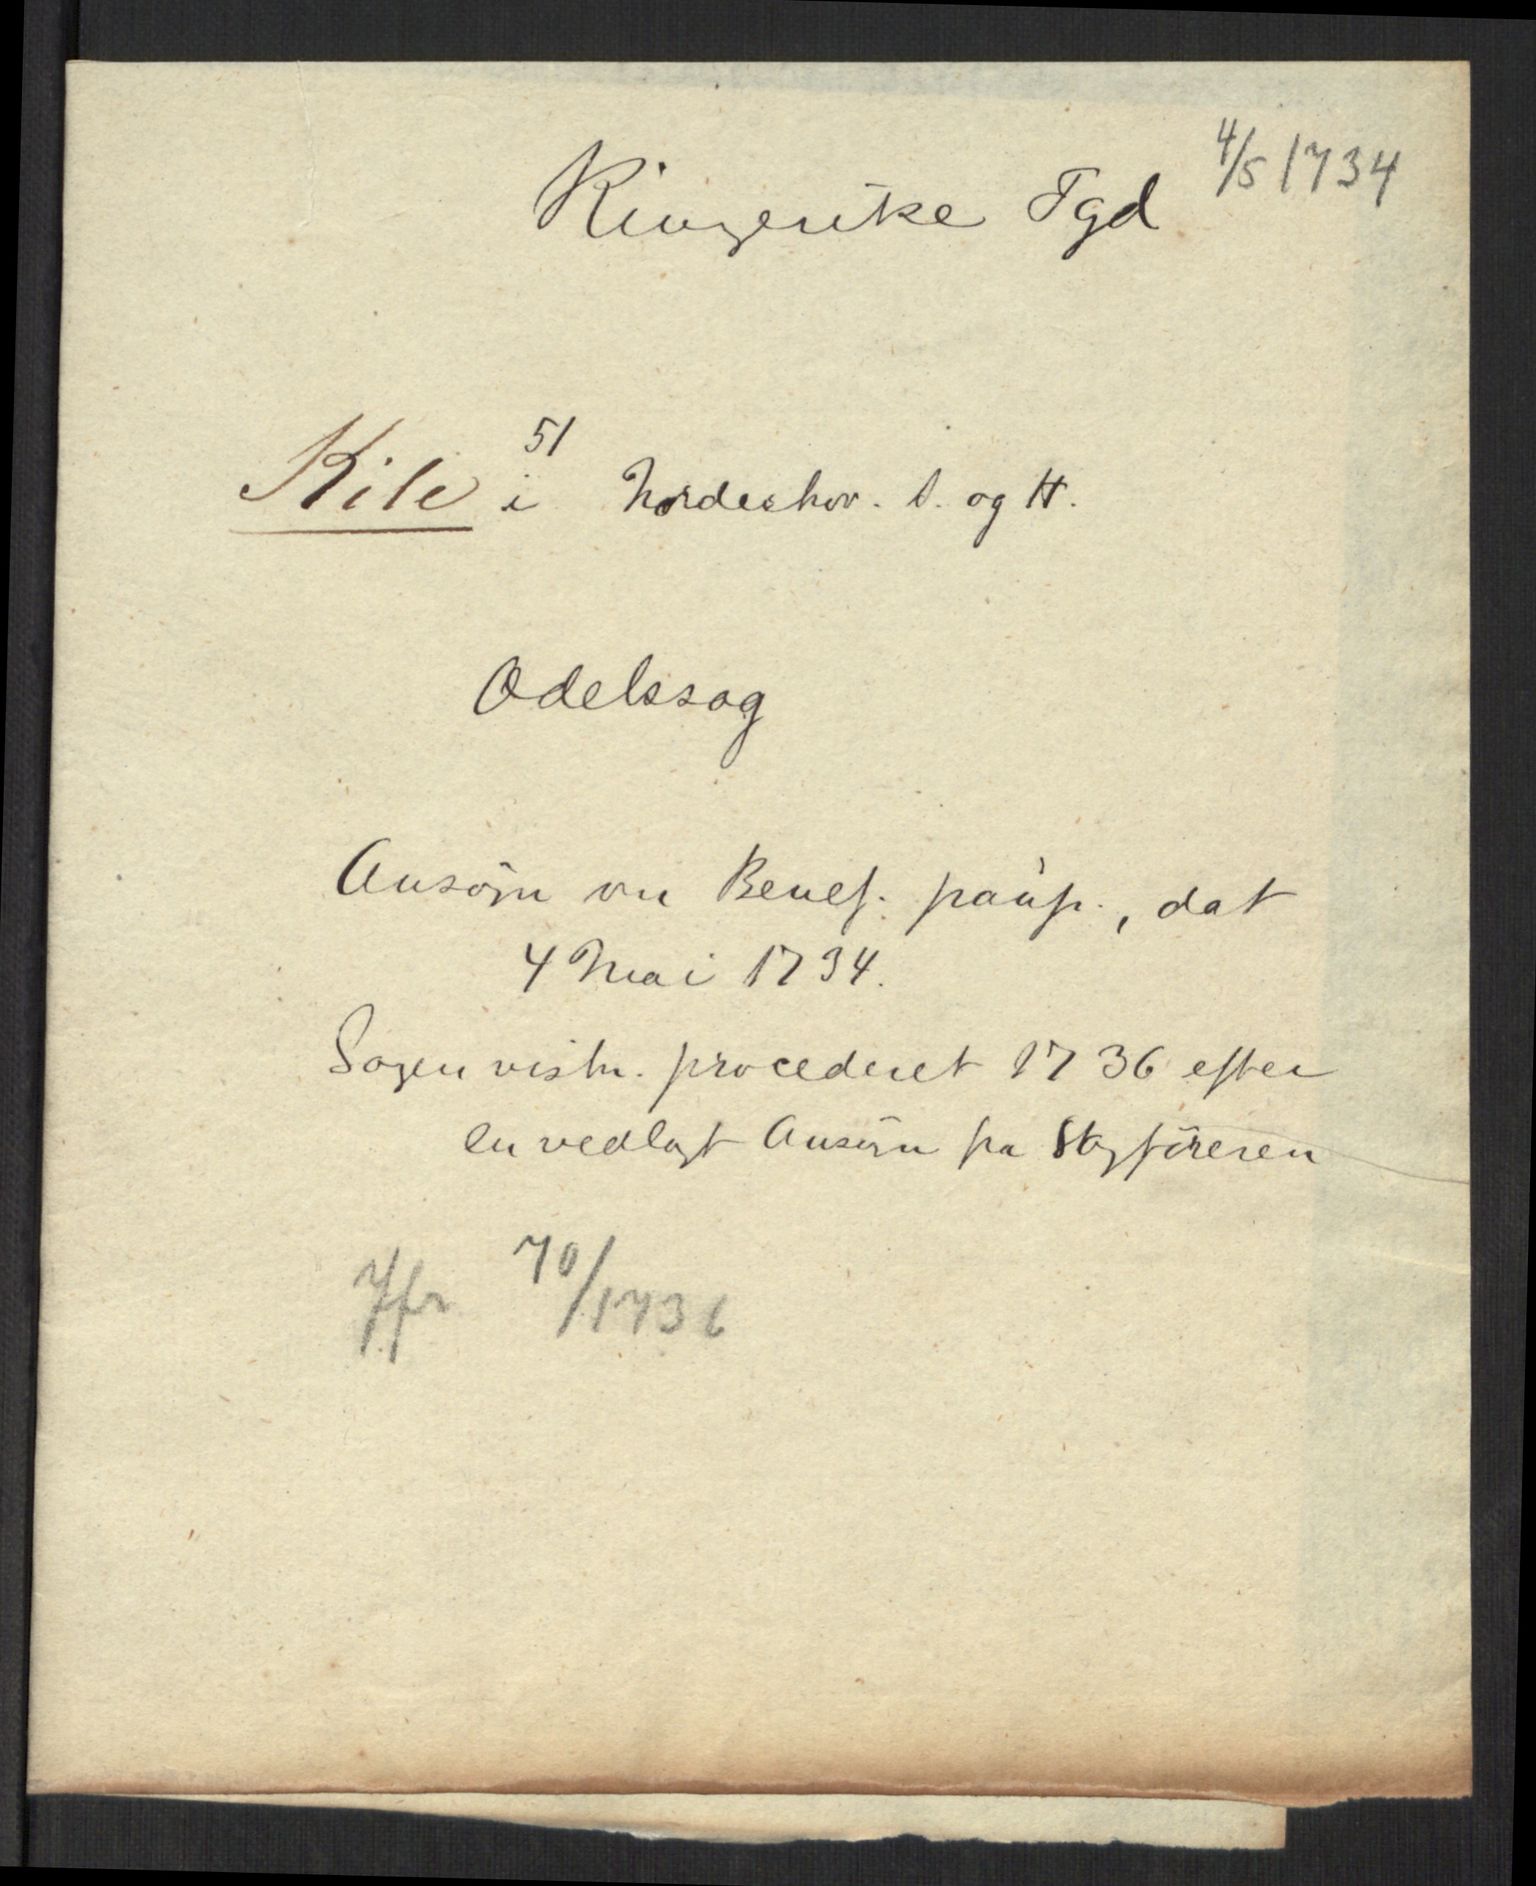 4/5 1734
Ringerike Fgd
51
Kile i Nordeshov. S. og H.
Odelssag
Ansøgn om Benef. paup., dat
4 Mai 1734.
Sagen vistn. procederet 1736 efter
en vedlagt Ansøgn fra Sagføreren
Jfr 70/1736